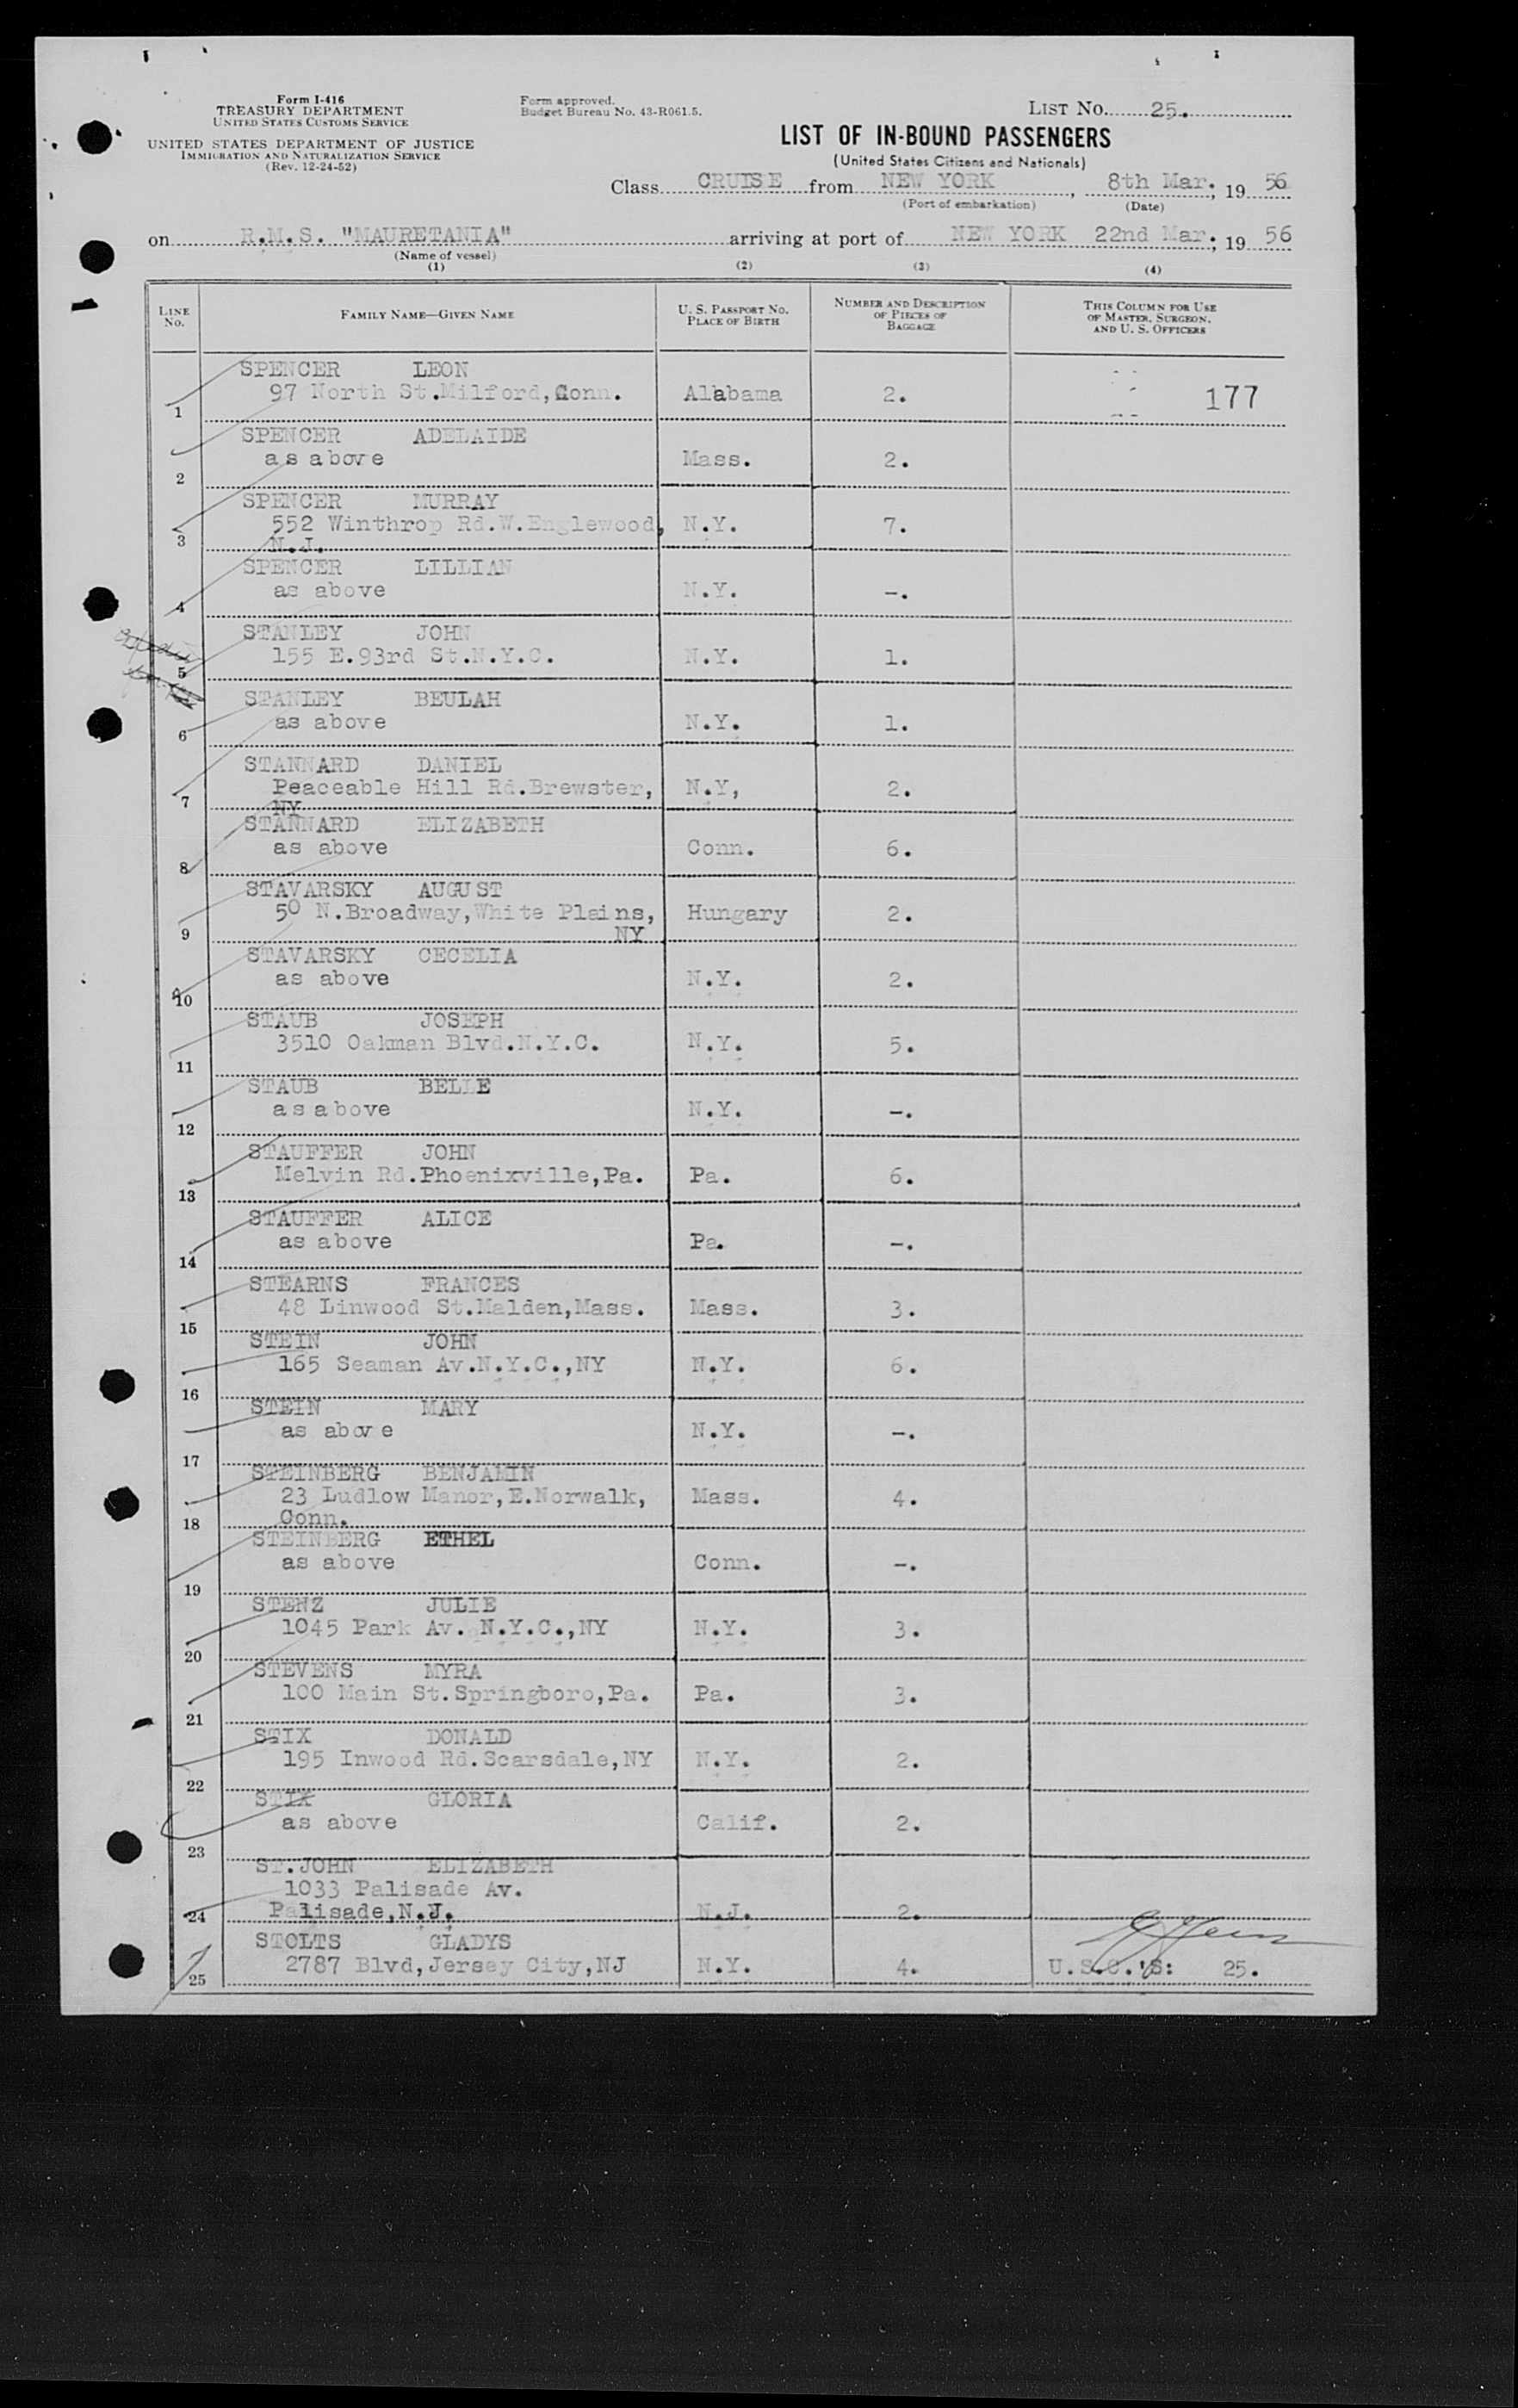 Form I-416
TREASURY DEPARTMENT
UNITED STATES CUSTOMS SERVICE
UNITED STATES DEPARTMENT OF JUSTICE
IMMIGRATION AND NATURALIZATION SERVICE
(Rev. 12-24-52)
Form approved.
Budget Bureau No. 43-R061.5.
LIST NO. 25.
LIST OF IN-BOUND PASSENGERS
(United States Citizens and Nationals)
Class CRUISE from NEW YORK, 8th Mar., 19 56
(Port of embarkation) (Date)
on R.M.S. "MAURETANIA" arriving at port of NEW YORK 22nd Mar., 19 56
(Name of vessel)
(1) (2) (3) (4)
LINE NO. FAMILY NAME—GIVEN NAME U. S. PASSPORT NO. PLACE OF BIRTH NUMBER AND DESCRIPTION OF PIECES OF BAGGAGE THIS COLUMN FOR USE OF MASTER, SURGEON, AND U. S. OFFICERS
SPENCER LEON
1 97 North St.Milford,Conn. Alabama 2. 177
SPENCER ADELAIDE
2 as above Mass. 2.
SPENCER MURRAY
3 552 Winthrop Rd.W.Englewood, N.Y. 7.
N.J.
SPENCER LILLIAN
4 as above N.Y. -.
STANLEY JOHN
5 155 E.93rd St.N.Y.C. N.Y. 1.
STANLEY BEULAH
6 as above N.Y. 1.
STANNARD DANIEL
7 Peaceable Hill Rd.Brewster, N.Y, 2.
NY
STANNARD ELIZABETH
8 as above Conn. 6.
STAVARSKY AUGUST
9 50 N.Broadway,White Plains, Hungary 2.
NY
STAVARSKY CECELIA
10 as above N.Y. 2.
STAUB JOSEPH
11 3510 Oakman Blvd.N.Y.C. N.Y. 5.
STAUB BELLE
12 as above N.Y. -.
STAUFFER JOHN
13 Melvin Rd.Phoenixville,Pa. Pa. 6.
STAUFFER ALICE
14 as above Pa. -.
STEARNS FRANCES
15 48 Linwood St.Malden,Mass. Mass. 3.
STEIN JOHN
16 165 Seaman Av.N.Y.C.,NY N.Y. 6.
STEIN MARY
17 as above N.Y. -.
STEINBERG BENJAMIN
18 23 Ludlow Manor,E.Norwalk, Mass. 4.
Conn.
STEINBERG ETHEL
19 as above Conn. -.
STENZ JULIE
20 1045 Park Av. N.Y.C.,NY N.Y. 3.
STEVENS MYRA
21 100 Main St.Springboro,Pa. Pa. 3.
STIX DONALD
22 195 Inwood Rd.Scarsdale,NY N.Y. 2.
STIX GLORIA
23 as above Calif. 2.
ST.JOHN ELIZABETH
1033 Palisade Av.
24 Palisade,N.J. N.J. 2.
STOLTS GLADYS
25 2787 Blvd,Jersey City,NJ N.Y. 4. U.S.C.'S: 25.